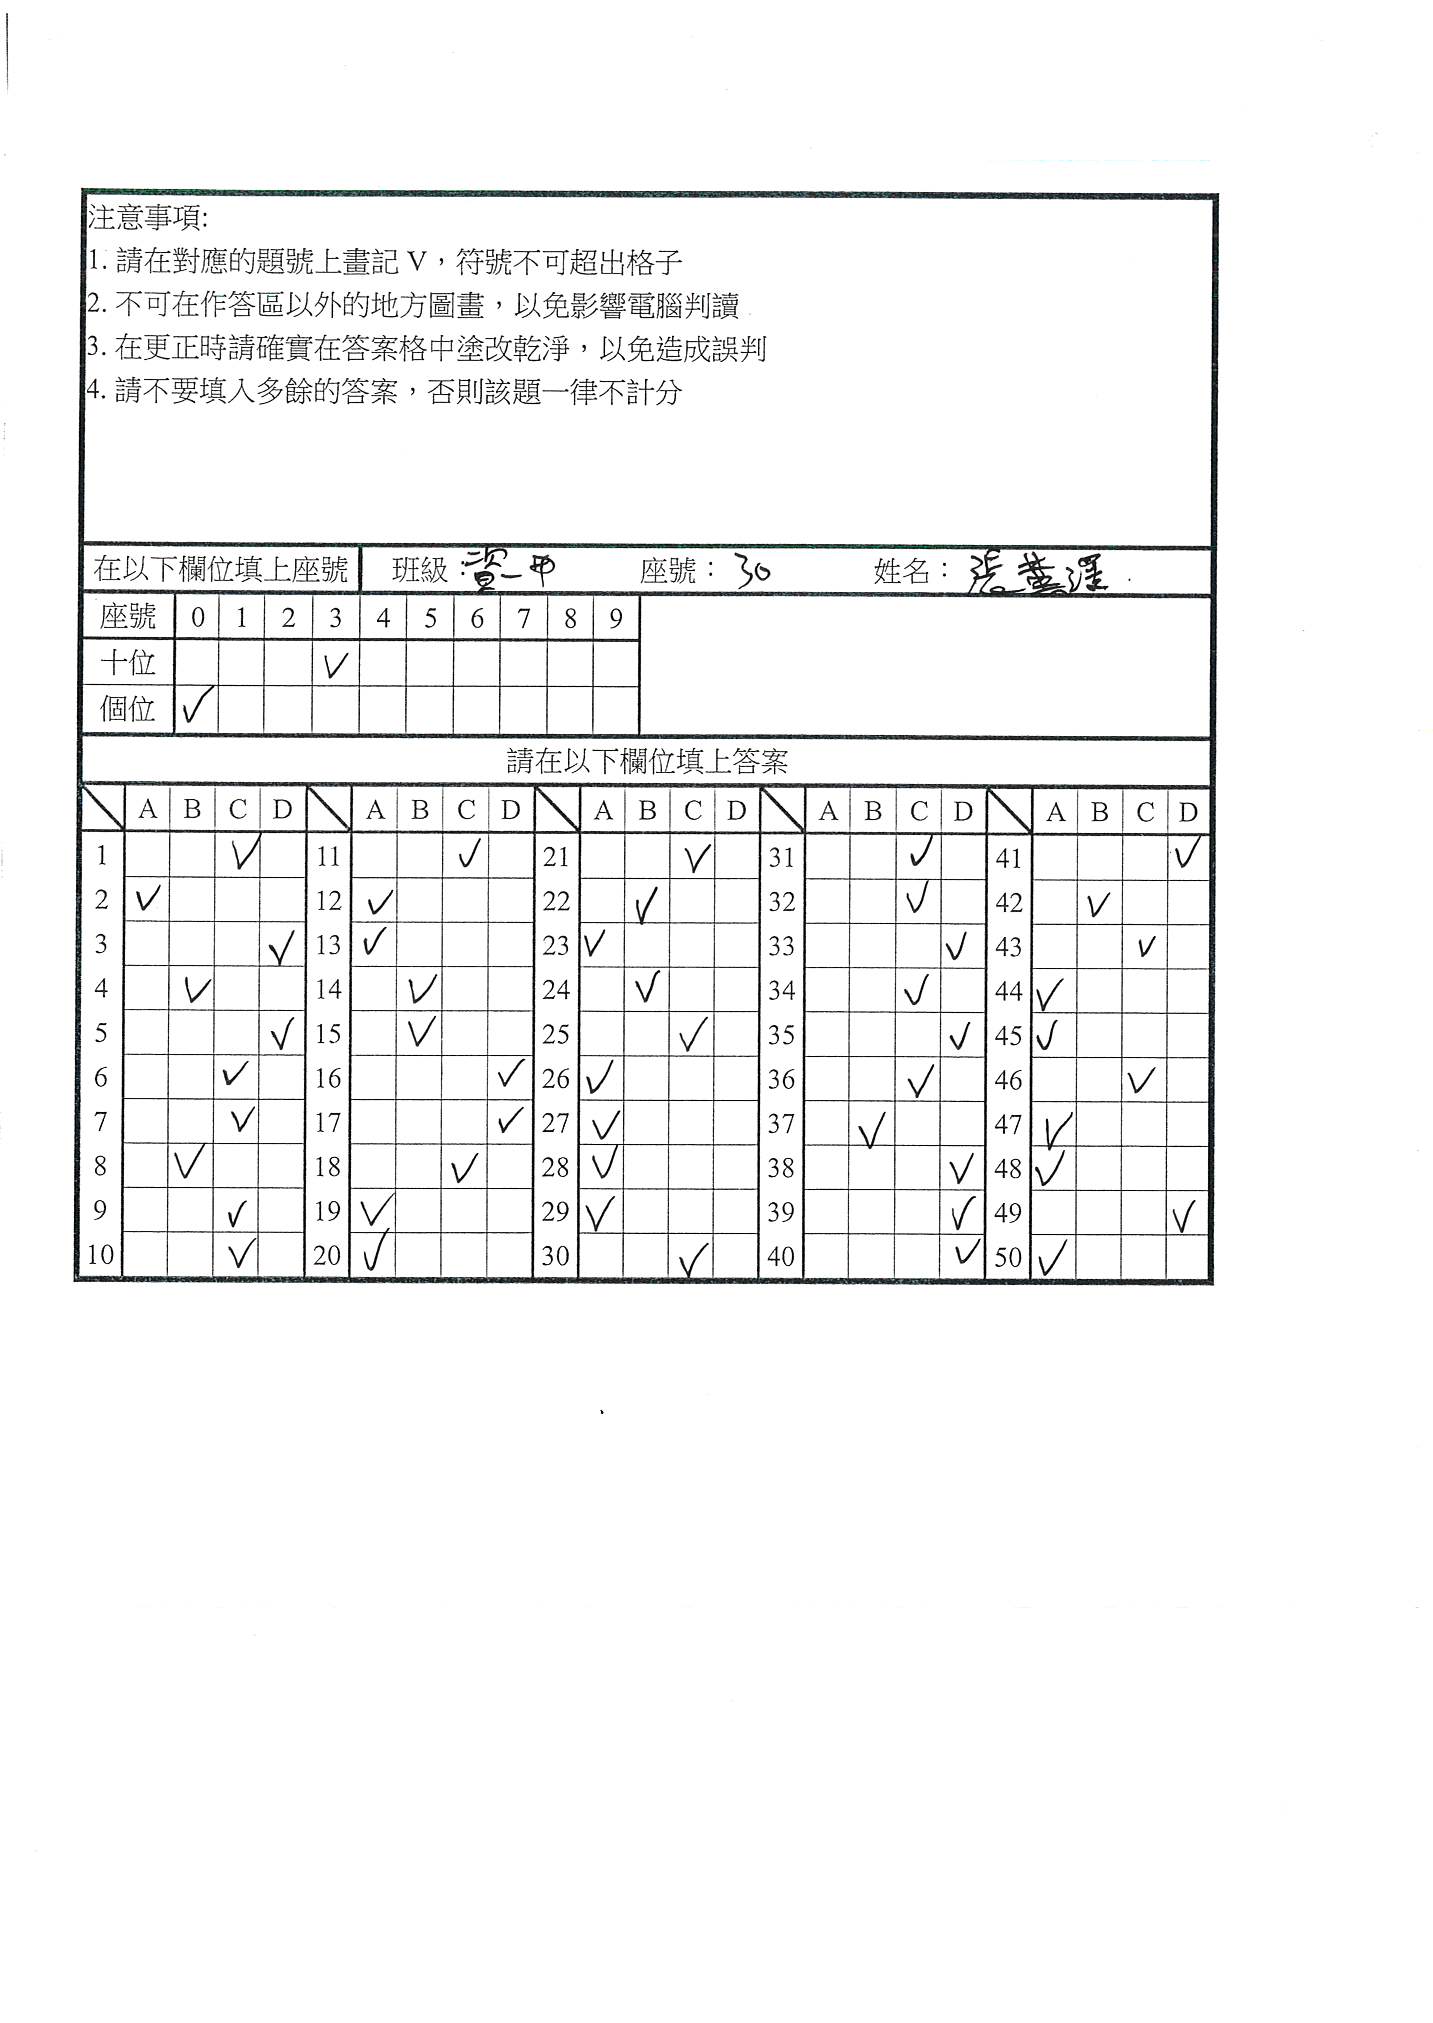 注意事項:
1. 請在對應的題號上畫記 V，符號不可超出格子
2. 不可在作答區以外的地方圖畫，以免影響電腦判讀
3. 在更正時請確實在答案格中塗改乾淨，以免造成誤判
4. 請不要填入多餘的答案，否則該題一律不計分
在以下欄位填上座號 班級：資一甲 座號：30 姓名：張 澤
座號 0 1 2 3 4 5 6 7 8 9
十位 V
個位 V
請在以下欄位填上答案
A B C D A B C D A B C D A B C D A B C D
1 V 11 V 21 V 31 V 41 V
2 V 12 V 22 V 32 V 42 V
3 V 13 V 23 V 33 V 43 V
4 V 14 V 24 V 34 V 44 V
5 V 15 V 25 V 35 V 45 V
6 V 16 V 26 V 36 V 46 V
7 V 17 V 27 V 37 V 47 V
8 V 18 V 28 V 38 V 48 V
9 V 19 V 29 V 39 V 49 V
10 V 20 V 30 V 40 V 50 V